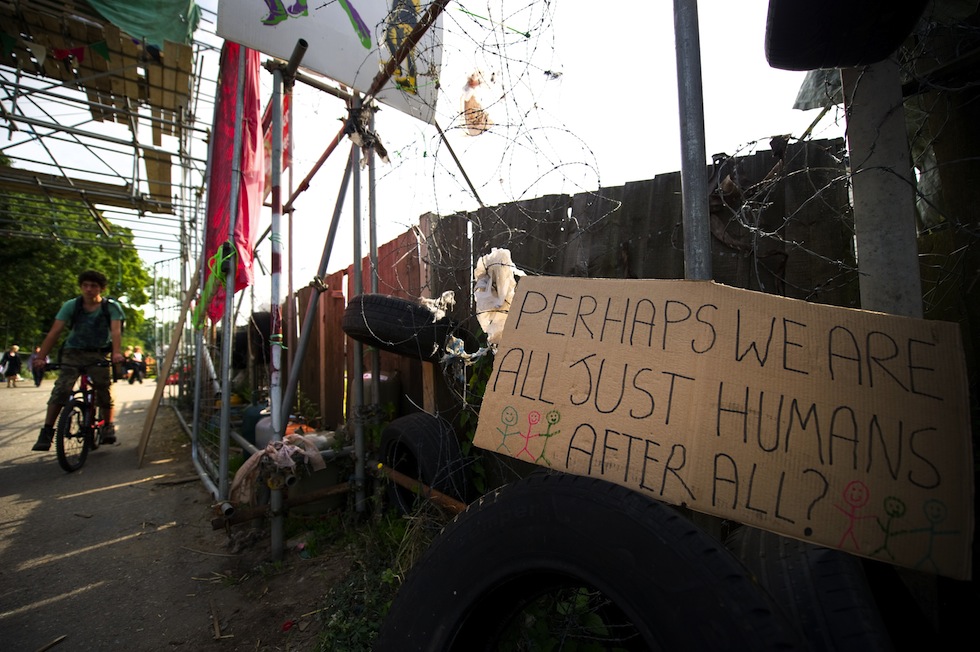 PERHAPS WE ARE
ALL JUST HUMANS
AFTER ALL?